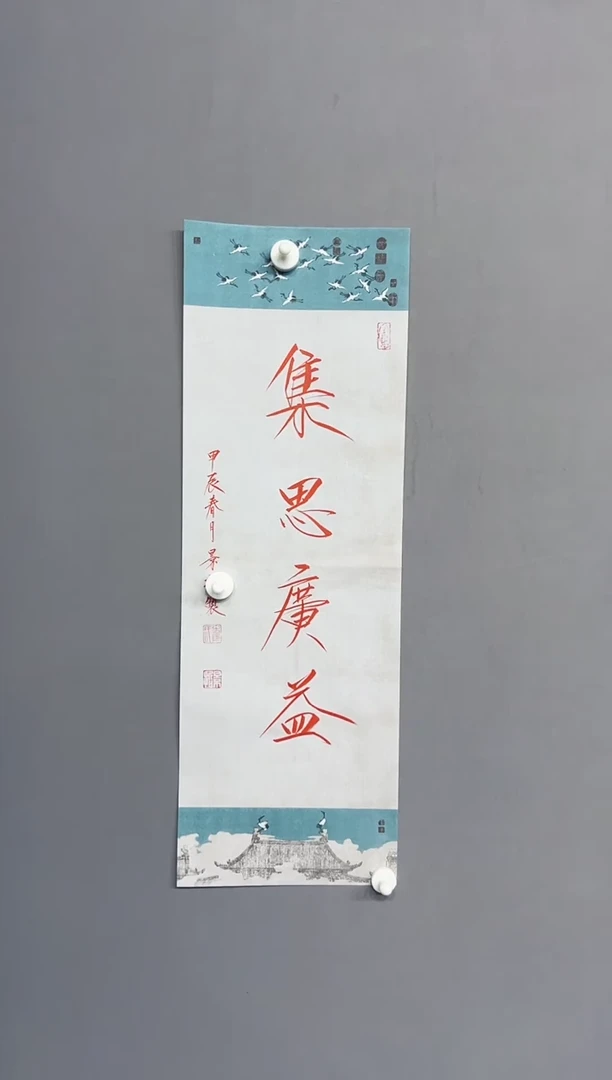 集思廣益
甲辰春月景